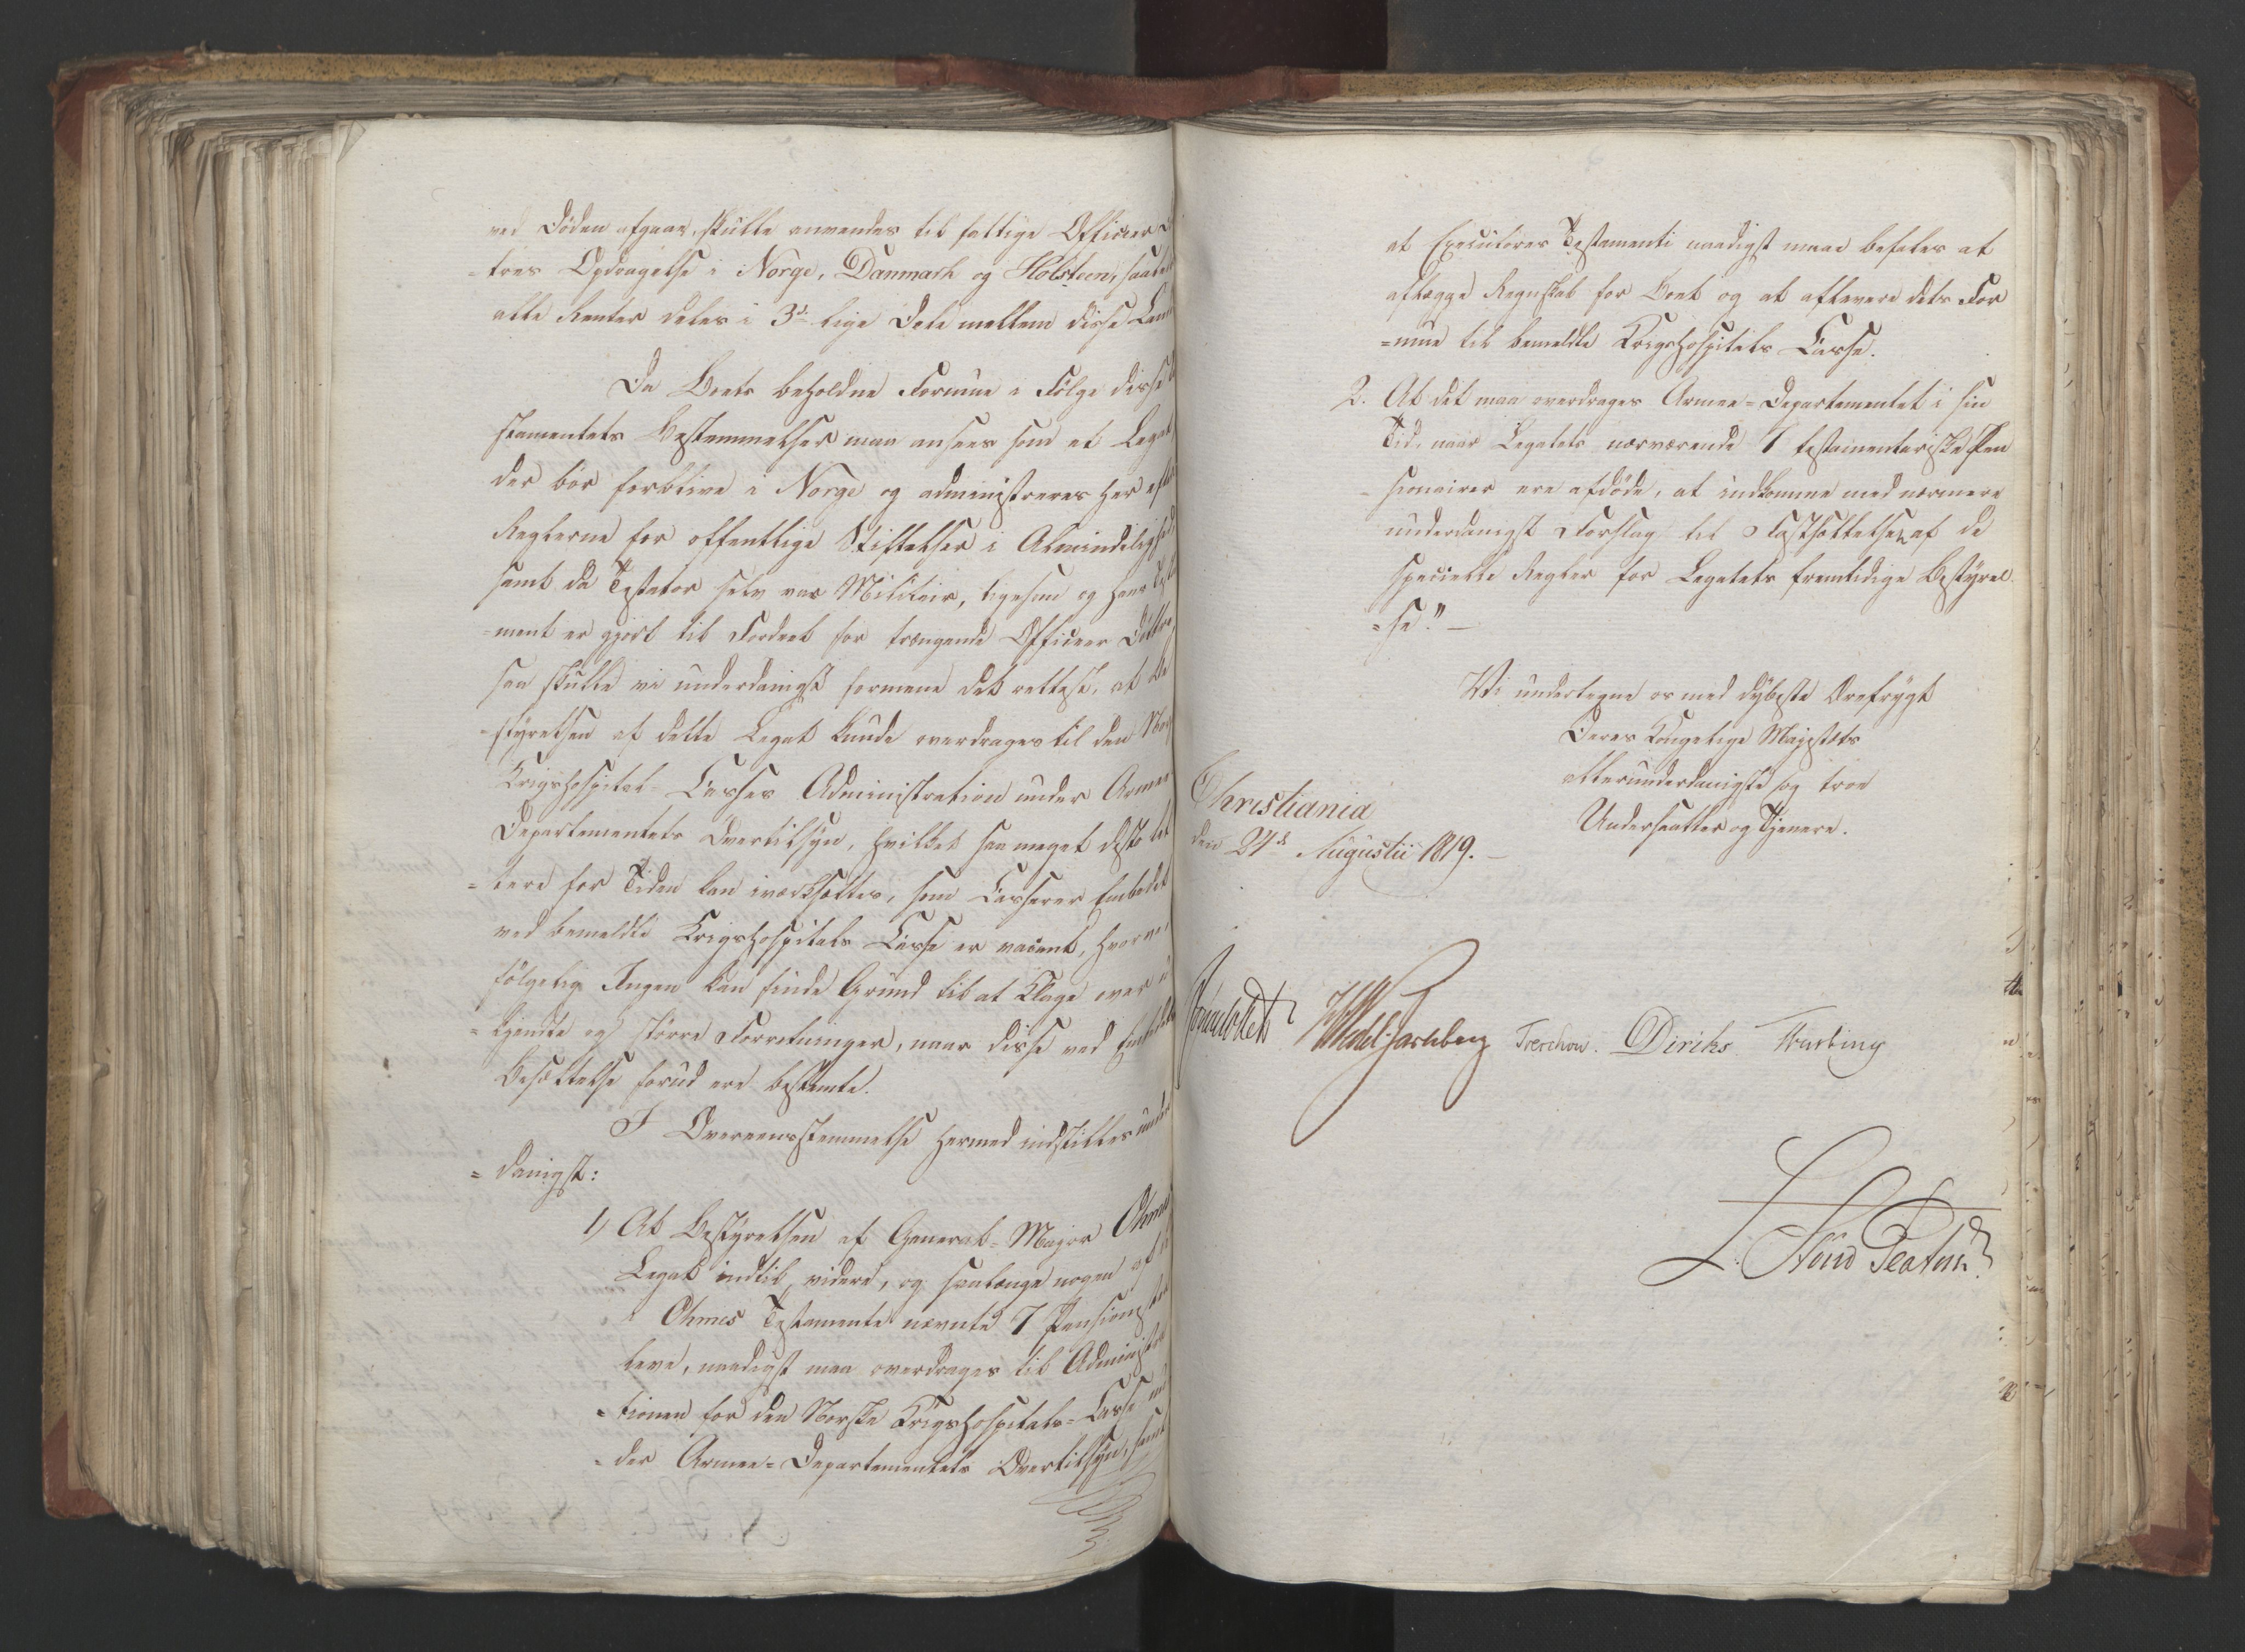 ved Døden afgaaer, skulle anvendes til fattige Officier D
=tres Opdragelse i Norge, Danmark og Holsteen, saaledes
alle Renter deles i 3de lige Dele mellem disse Lan
Da Boets beholdne Formue i Følge disse Te
stamentets Bestemmelser maa ansees som et Legat
der bør forblive i Norge og administreres her efter
Reglerne for offentlige Stiftelser i Almindelighed
samt da Testator selv var Militair, ligesom og hans Testa
=ment er gjort til Fordeel for trængende Officeer Døttre
saa skulle vi underdanigst formene det rettest, at Be
=styrelsen af dette Legat kunde overdrages til den Nor
Krigshospital-Casses Administration under Armee
Departementets Overtilsyn, hvilket saa meget desto let
=tere for Tiden kan iværksættes, som Casserer Embedet
ved bemeldte Krigshospitals Casse er vacant, hvorved
følgelig Ingen kan finde Grund til at klage over u
=kjendte og større Forretninger, naar disse ved Embedets
Besættelse forud ere bestemte.
I Overeensstemmelse hermed indstilles under
=danigst:
1) At Bestyrelsen af General-Major Ohmes
Legat indtil videre, og saalænge nogen af de
i Ohmes Testamente nævnte 7 Pensionister
leve, naadigst maa overdrages til Administra
=tionen for den Norske Krigshospitals-Casse un
=der Armee-Departementets Overtilsyn, samt
at Executores Testamenti naadigst maae befales at
aflægge Regnskab for Boet og at aflevere dets For
=mue til bemeldte Krigshospitals Casse.
2. At det maa overdrages Armee-Departementet i sin
Tid, naar Legatets nærværende 7 testamentariske Pen
=sionairer ere afdøde, at indkomme med nærmere
underdanigst Forslag til Fastsættelsen af de
specielle Regler for Legatets fremtidige Bestyrel
=se."—
Vi undertegne os med dybeste Ærefrygt
Deres Kongelige Majestæts
allerunderdanigste og troe
Undersaatter og Tjenere.
Christiania
den 24de Augustii 1819.—
Sommerfeldt HWedel Jarlsberg Treschow. Diriks